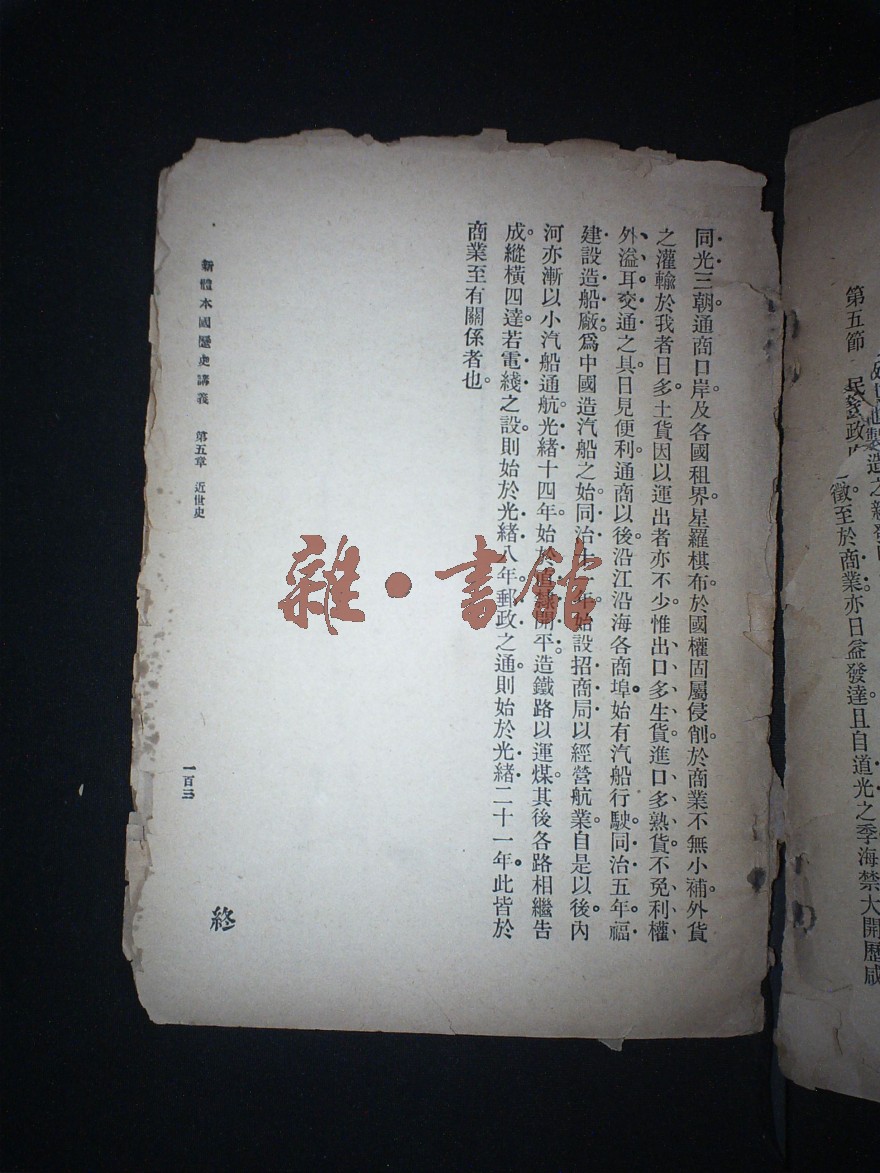 第五節
徵至於商業亦日益發達且自道光之季海禁大開歷咸
同光三朝通商口岸及各國租界星羅棋布於國權固屬侵削於商業不無小補外貨
之灌輸於我者日多土貨因以運出者亦不少惟出口多生貨進口多熟貨不免利權
外溢耳交通之具日見便利通商以後沿江沿海各商埠始有汽船行駛同治五年福
建設造船廠爲中國造汽船之始同治十一年始設招商局以經營航業自是以後內
河亦漸以小汽船通航光緒十四年始於直隸開平造鐵路以運煤其後各路相繼告
成縱橫四達若電綫之設則始於光緒八年郵政之通則始於光緒二十一年此皆於
商業至有關係者也
新體本國歷史講義 第五章 近世史
一百三
終
雜·書館